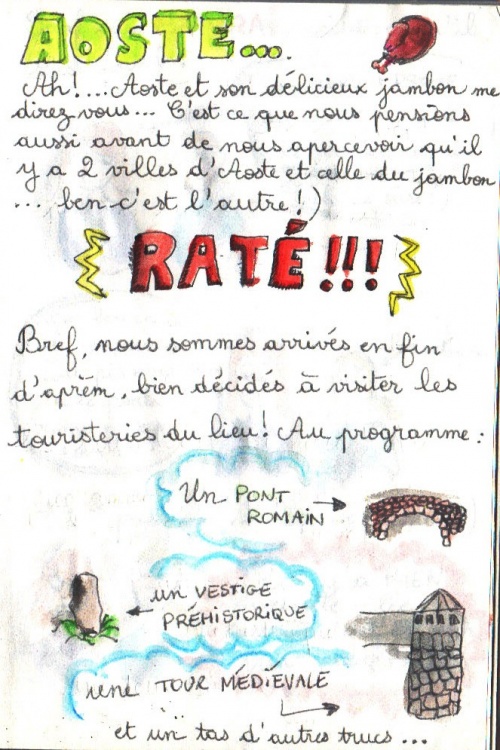 AOSTE...
Ah!... Aoste et son délicieux jambon me
direz vous... C'est ce que nous pensions
aussi avant de nous apercevoir qu'il
y a 2 villes d'Aoste et celle du jambon
... ben c'est l'autre!)
RATÉ!!!
Bref, nous sommes arrivés en fin
d'aprèm, bien décidés à visiter les
touristeries du lieu! Au programme:
Un PONT
ROMAIN
un VESTIGE
PRÉHISTORIQUE
une TOUR MÉDIÉVALE
et un tas d'autres trucs...